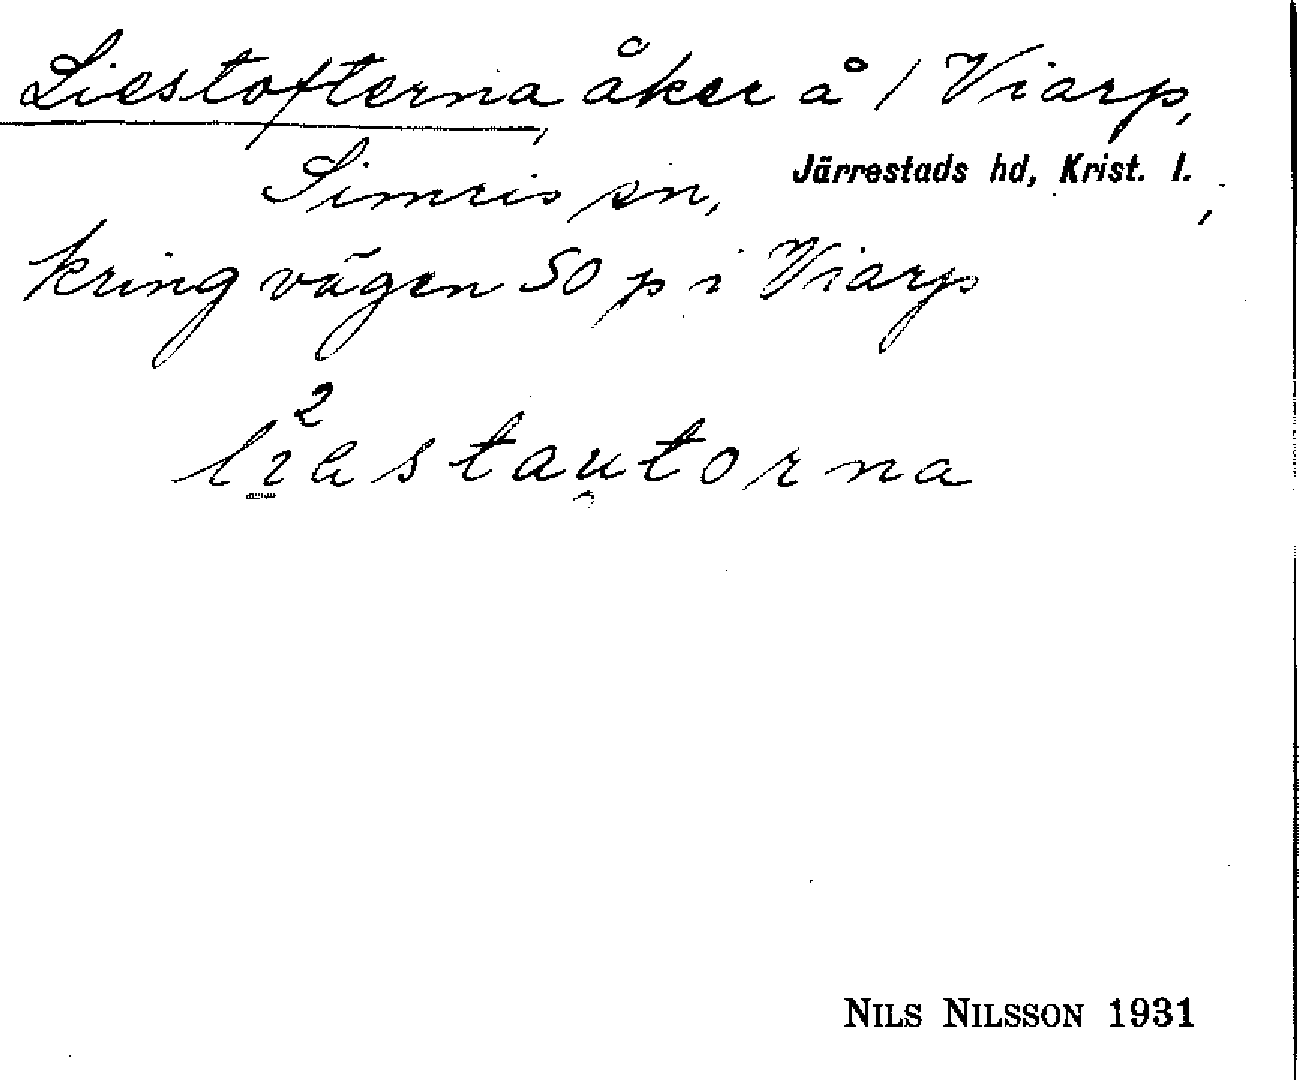 Liestofterna, åker å 1 Viarp,
Simris sn, Järrestads hd, Krist. l.,
kring vägen SO p i Viarp
li²estau̯torna
NILS NILSSON 1931